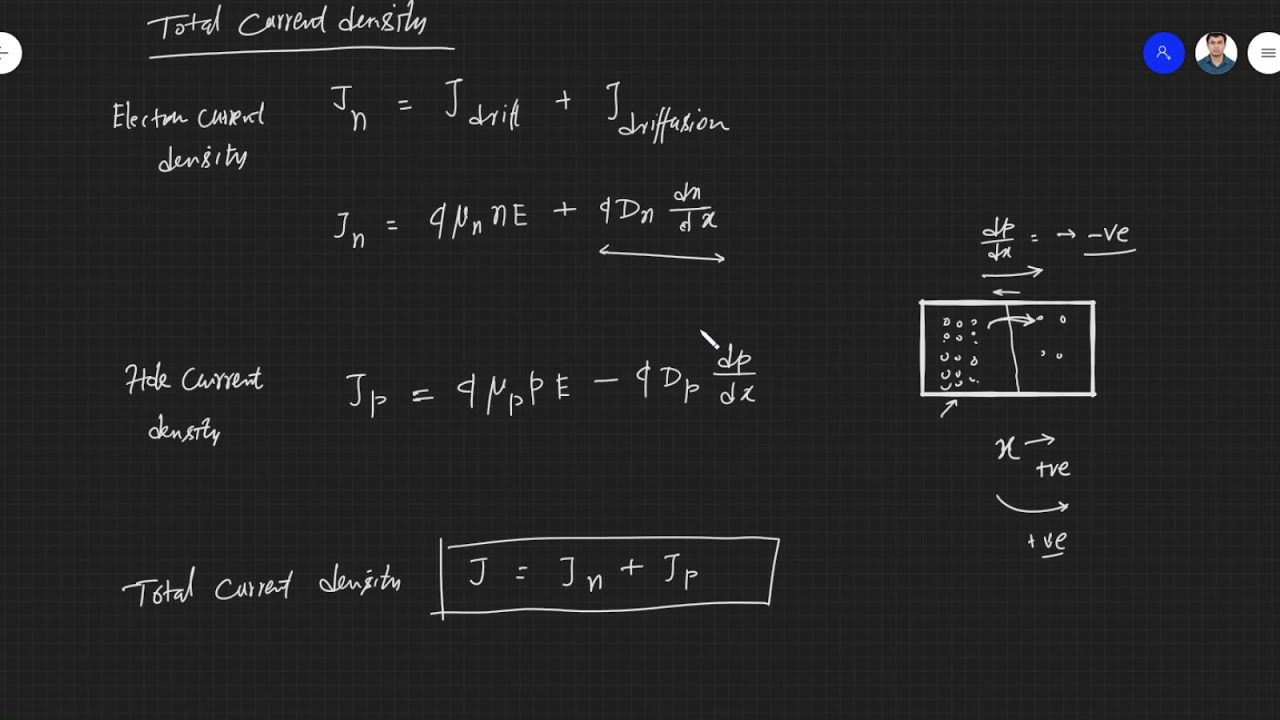 Total Current density
Electron Current
density
J_n = J_drift + J_driffusion
J_n = qμ_n nE + qD_n dn/dx
dp/dx = → -ve
Hole Current
density
J_p = qμ_p pE - qD_p dp/dx
x →
+ve
+ve
Total Current density
J = J_n + J_p